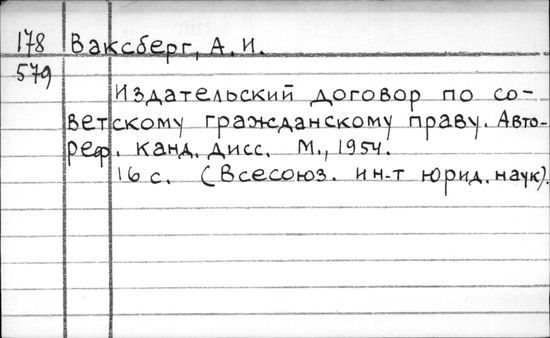 178 Ваксберг, А. И.
579
Издательский договор по со-
ветскому гражданскому праву. Авто-
реф. канд. дисс. М., 1954.
16 с. (Всесоюз. ин-т юрид. наук).